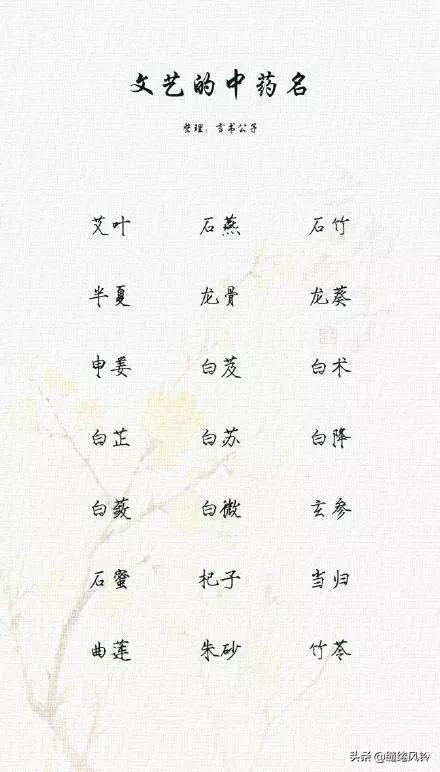 文艺的中药名
整理：言书公子
艾叶 石燕 石竹
半夏 龙骨 龙葵
申姜 白芨 白术
白芷 白苏 白降
白蔹 白微 玄参
石蜜 杞子 当归
曲莲 朱砂 竹苓
头条@缠绻风铃